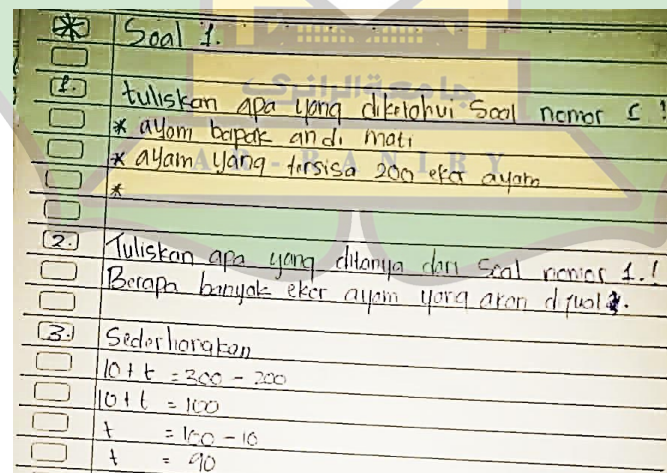 Soal 1.
جامعة الرانري
1. tuliskan apa yang diketahui Soal nomor 1 !
* ayam bapak andi mati
AR-RANIRY
* ayam yang tersisa 200 ekor ayam
*
2. Tuliskan apa yang ditanya dari Soal nomor 1.!
Berapa banyak ekor ayam yang akan dijual.
3. Sederhanakan
10 + t = 300 - 200
10 + t = 100
t = 100 - 10
t = 90